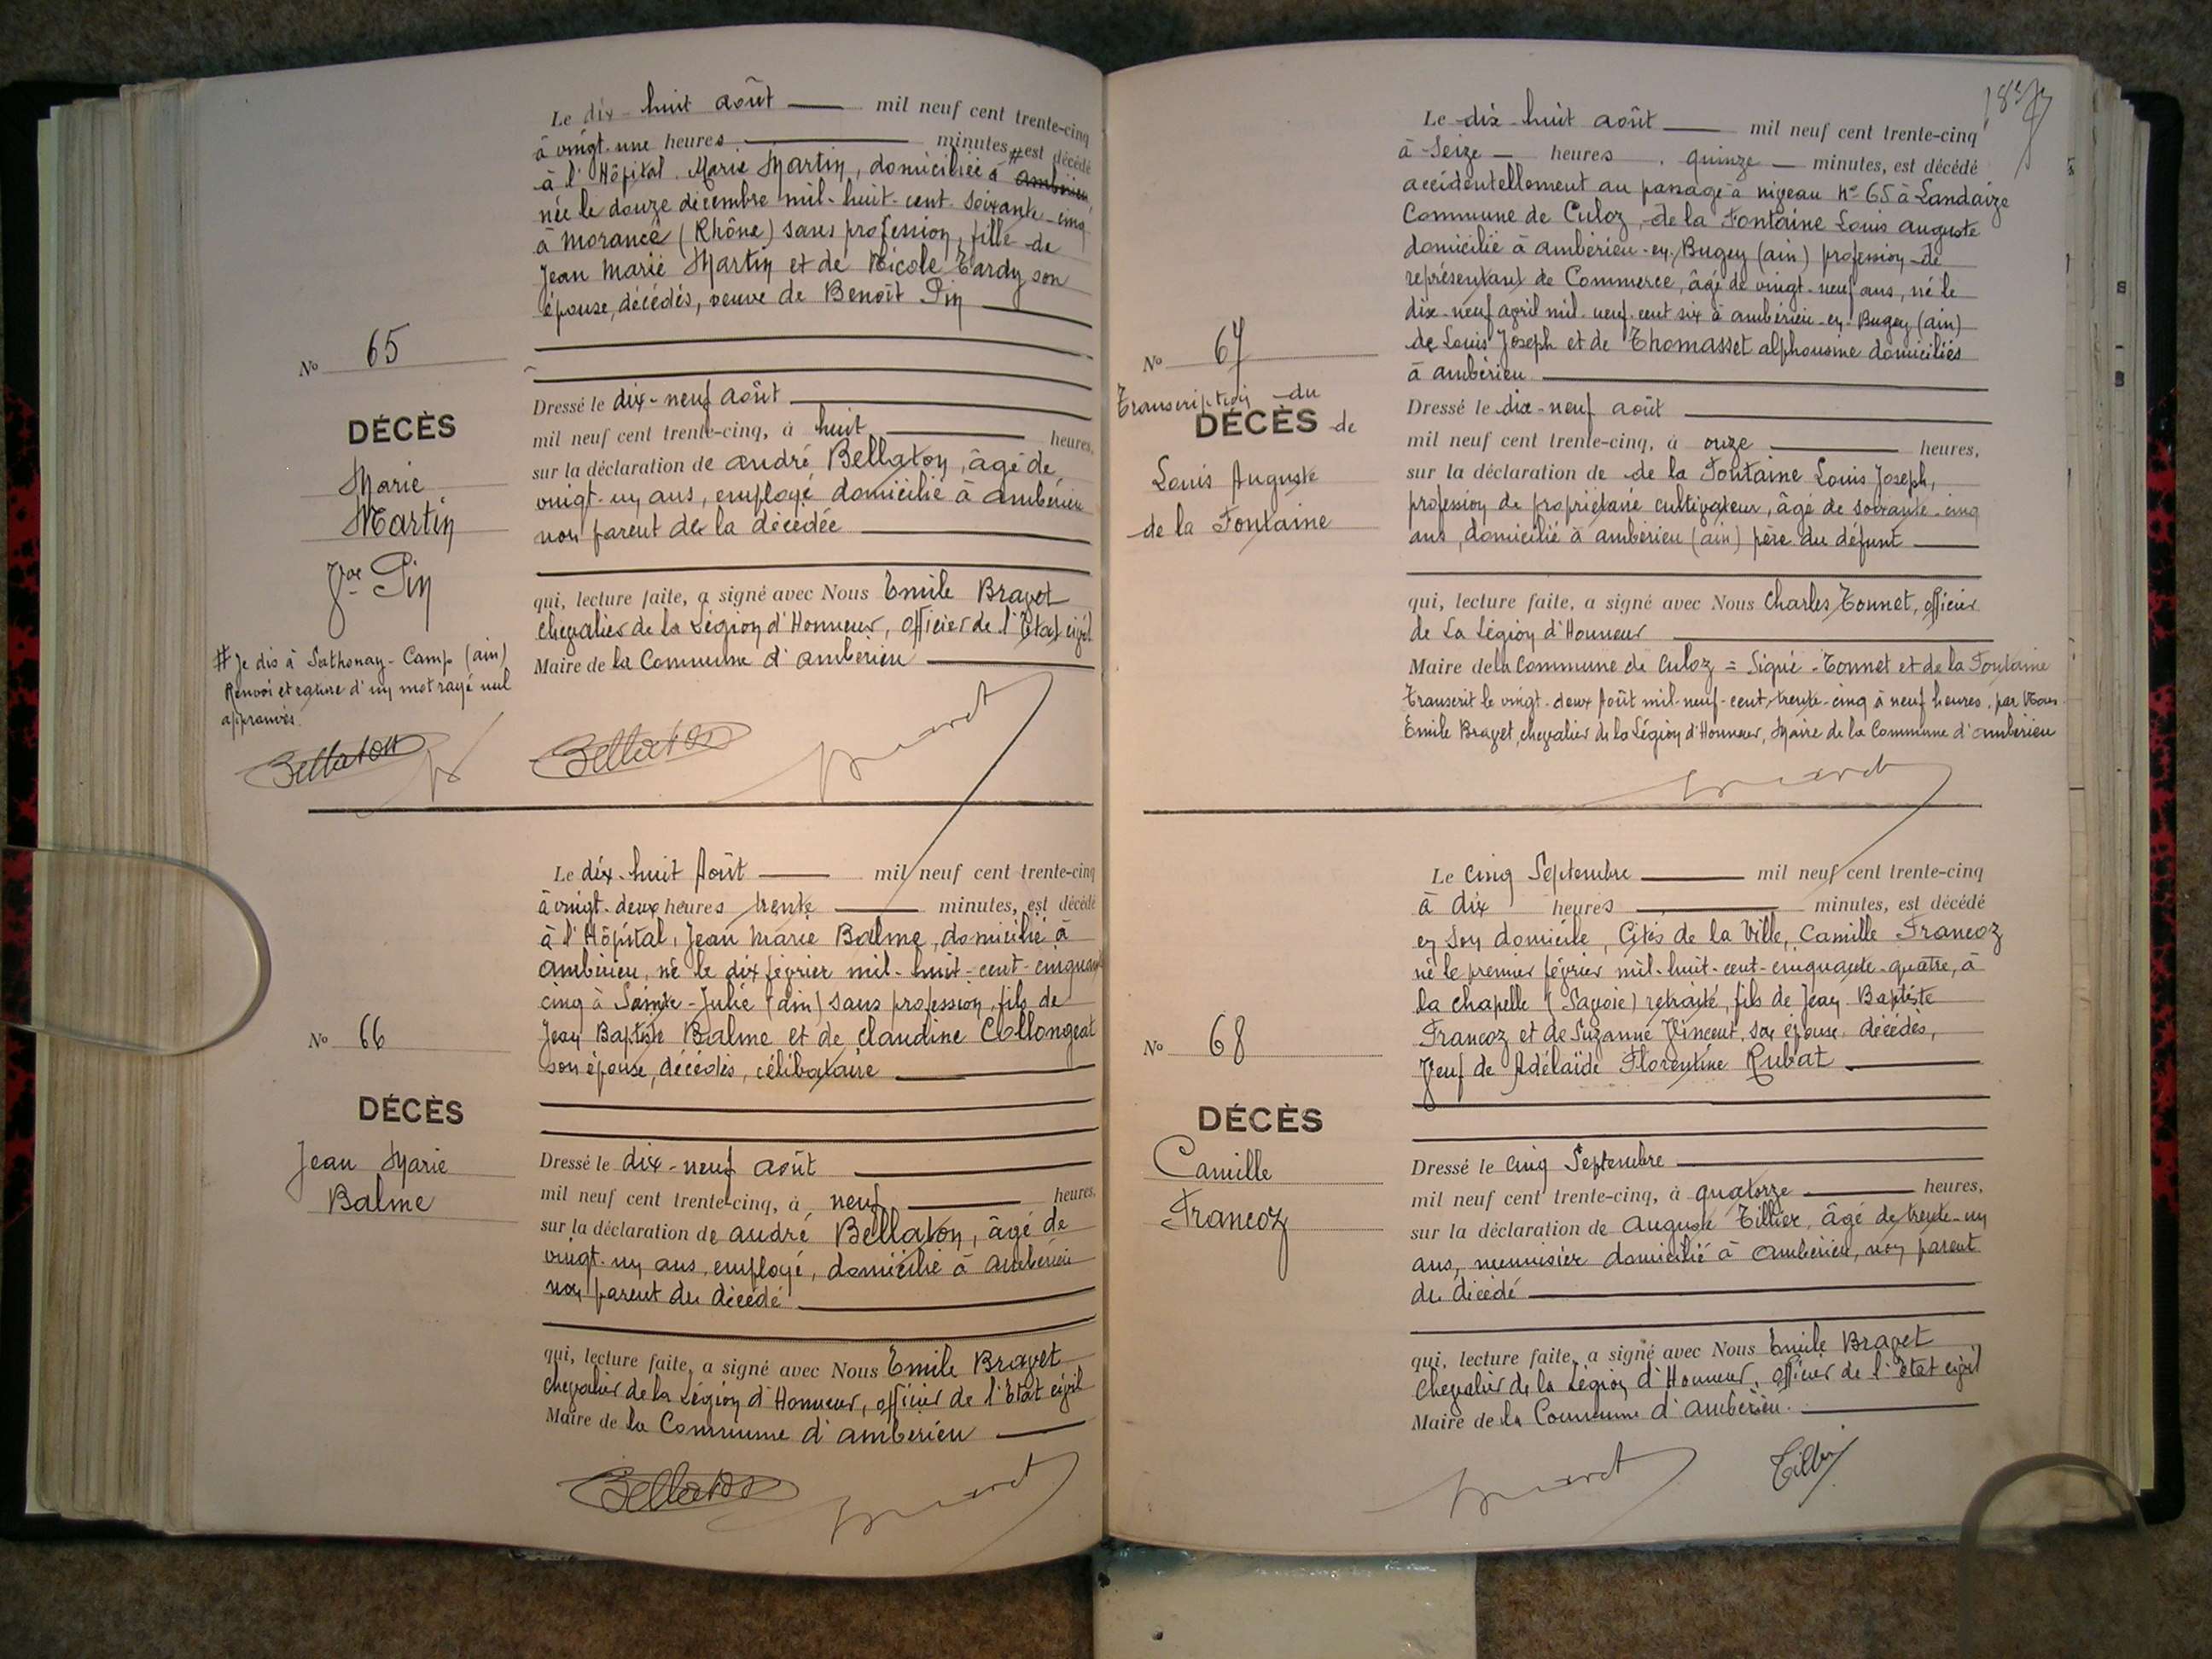 Le dix-huit août mil neuf cent trente-cinq
à vingt-une heures minutes, # est décédé
à l'Hôpital Marie Martin, domiciliée à ambérieu,
née le douze décembre mil-huit-cent-soixante-cinq
à Morancé (Rhône) sans profession, fille de
Jean Marie Martin et de Nicole Tardy son
épouse, décédés, veuve de Benoît Pin
No 65
DÉCÈS
Marie
Martin
Vve Pin
Dressé le dix-neuf août
mil neuf cent trente-cinq, à huit heures,
sur la déclaration de andré Bellaton, âgé de
vingt-un ans, employé domicilié à ambérieu
non parent de la décédée
qui, lecture faite, a signé avec Nous Emile Bravet
chevalier de la Légion d'Honneur, officier de l'Etat civil
Maire de la Commune d'ambérieu
# Je dis à Sathonay-Camp (ain)
Renvoi et rature d'un mot rayé nul
approuvés
Bellaton
Bellaton Bravet
Le dix-huit Août mil neuf cent trente-cinq
à vingt-deux heures trente minutes, est décédé
à l'Hôpital, Jean Marie Balme, domicilié à
ambérieu, né le dix février mil-huit-cent-cinquante
cinq à Sainte-Julie (ain) sans profession, fils de
Jean Baptiste Balme et de claudine Collongeat
son épouse, décédés, célibataire
No 66
DÉCÈS
Jean Marie
Balme
Dressé le dix-neuf août
mil neuf cent trente-cinq, à neuf heures,
sur la déclaration de andré Bellaton, âgé de
vingt-un ans, employé, domicilié à ambérieu
non parent du décédé
qui, lecture faite, a signé avec Nous Emile Bravet
chevalier de la Légion d'Honneur, officier de l'Etat civil
Maire de la Commune d'ambérieu
Bellaton Bravet
Le dix-huit août mil neuf cent trente-cinq
à Seize heures quinze minutes, est décédé
accidentellement au passage à niveau No 65 à Landaize
Commune de Culoz, de la Fontaine Louis auguste
domicilié à ambérieu-en-Bugey (ain) profession de
représentant de Commerce, âgé de vingt-neuf ans, né le
dix-neuf avril mil-neuf-cent six à ambérieu-en-Bugey (ain)
de Louis Joseph et de Thomasset alphonsine domiciliés
à ambérieu
No 67
Transcription du
DÉCÈS de
Louis Auguste
de la Fontaine
Dressé le dix-neuf août
mil neuf cent trente-cinq, à onze heures,
sur la déclaration de de la Fontaine Louis Joseph,
profession de propriétaire cultivateur, âgé de soixante-cinq
ans, domicilié à ambérieu (ain) père du défunt
qui, lecture faite, a signé avec Nous Charles Tonnet, officier
de La Légion d'Honneur
Maire de la Commune de Culoz = Signé - Tonnet et de la Fontaine
Transcrit le vingt-deux Août mil-neuf-cent-trente-cinq à neuf heures, par Nous
Emile Bravet, chevalier de la Légion d'Honneur, Maire de la Commune d'ambérieu
Bravet
Le cinq Septembre mil neuf cent trente-cinq
à dix heures minutes, est décédé
en son domicile, Cités de la Ville, Camille Francoz
né le premier février mil-huit-cent-cinquante-quatre, à
la chapelle (Savoie) retraité, fils de Jean-Baptiste
Francoz et de Suzanne Vincent, son épouse, décédés,
Veuf de Adélaïde Florentine Rubat
No 68
DÉCÈS
Camille
Francoz
Dressé le cinq Septembre
mil neuf cent trente-cinq, à quatorze heures,
sur la déclaration de auguste Tillier, âgé de trente-un
ans, menuisier domicilié à ambérieu, non parent
du décédé
qui, lecture faite, a signé avec Nous Emile Bravet
Chevalier de la Légion d'Honneur, officier de l'Etat civil
Maire de la Commune d'ambérieu.
Bravet Tillier